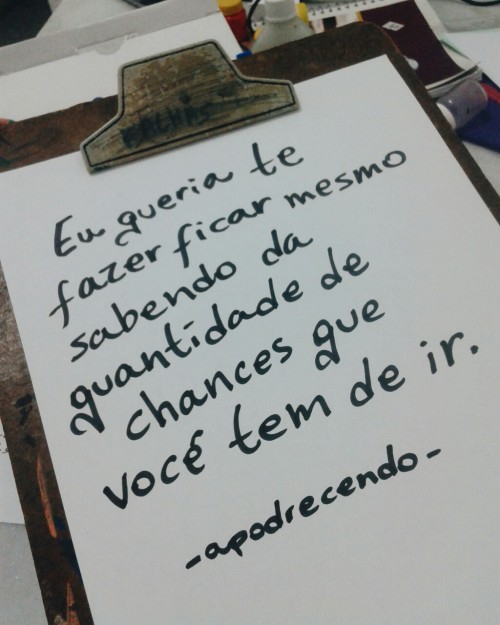 Eu queria te
fazer ficar mesmo
sabendo da
quantidade de
chances que
você tem de ir.
-apodrecendo-